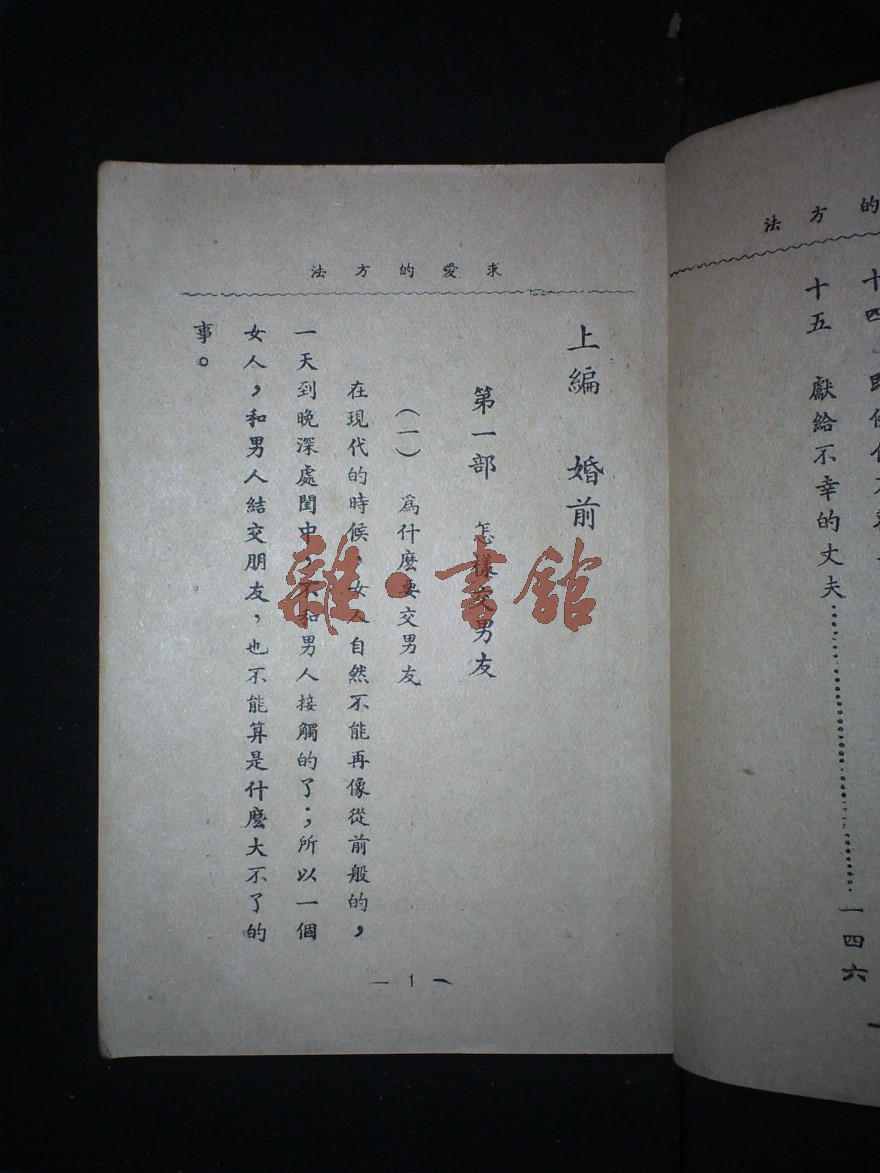 的方法
十四
十五 獻給不幸的丈夫……………一四六
求愛的方法
上編 婚前
第一部 怎樣交男友
(一) 爲什麽要交男友
在現代的時候,女人自然不能再像從前般的,
一天到晚深處閨中,不和男人接觸的了;所以一個
女人,和男人結交朋友,也不能算是什麽大不了的
事。
— 1 —
雜·書館